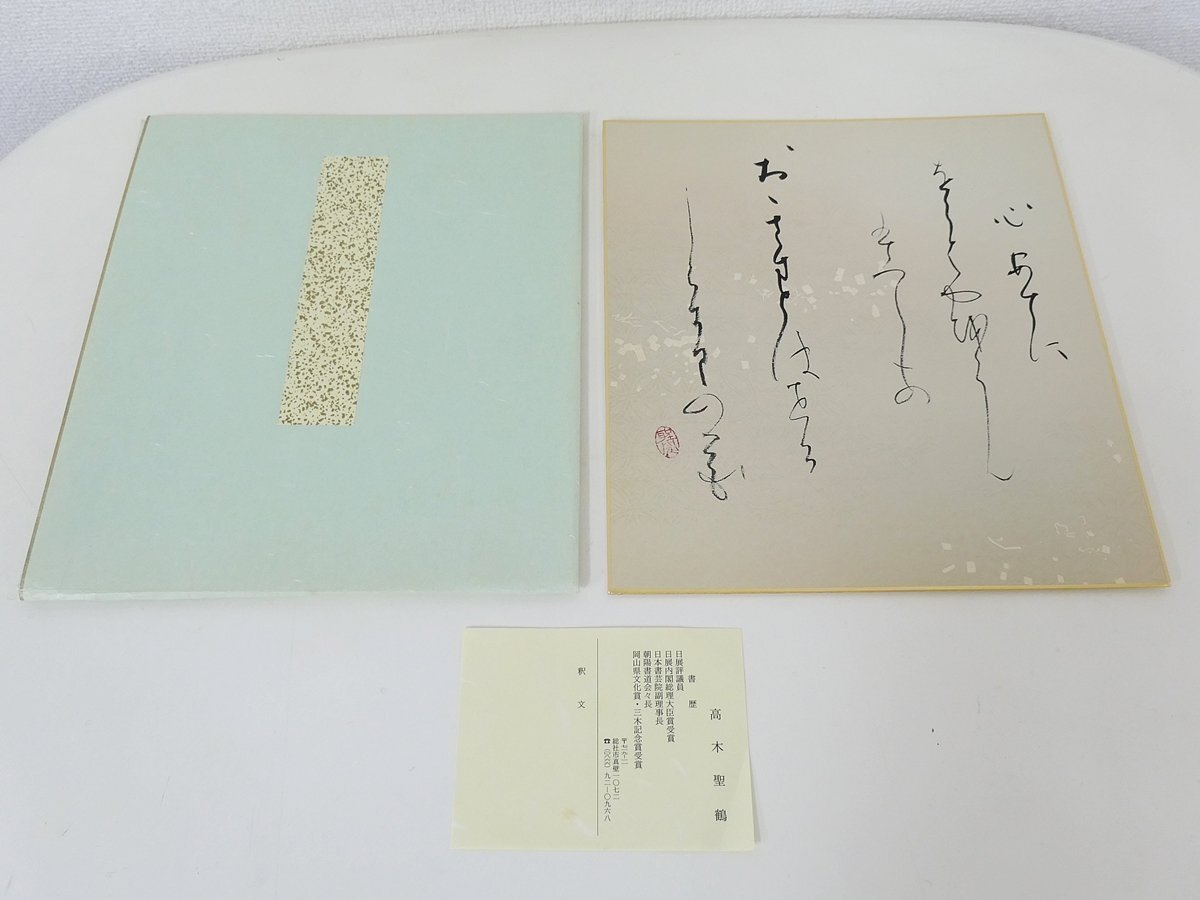 心あてに
をらはやをらん
はつしもの
おきまとはせる
しらきくの花
高木聖鶴
書歴
日展評議員
日展内閣総理大臣賞受賞
日本書芸院副理事長
朝陽書道会々長
岡山県文化賞・三木記念賞受賞
〒七一九-一一
総社市真壁一〇七二
☎(〇八六六)九二ー〇九六八
釈文